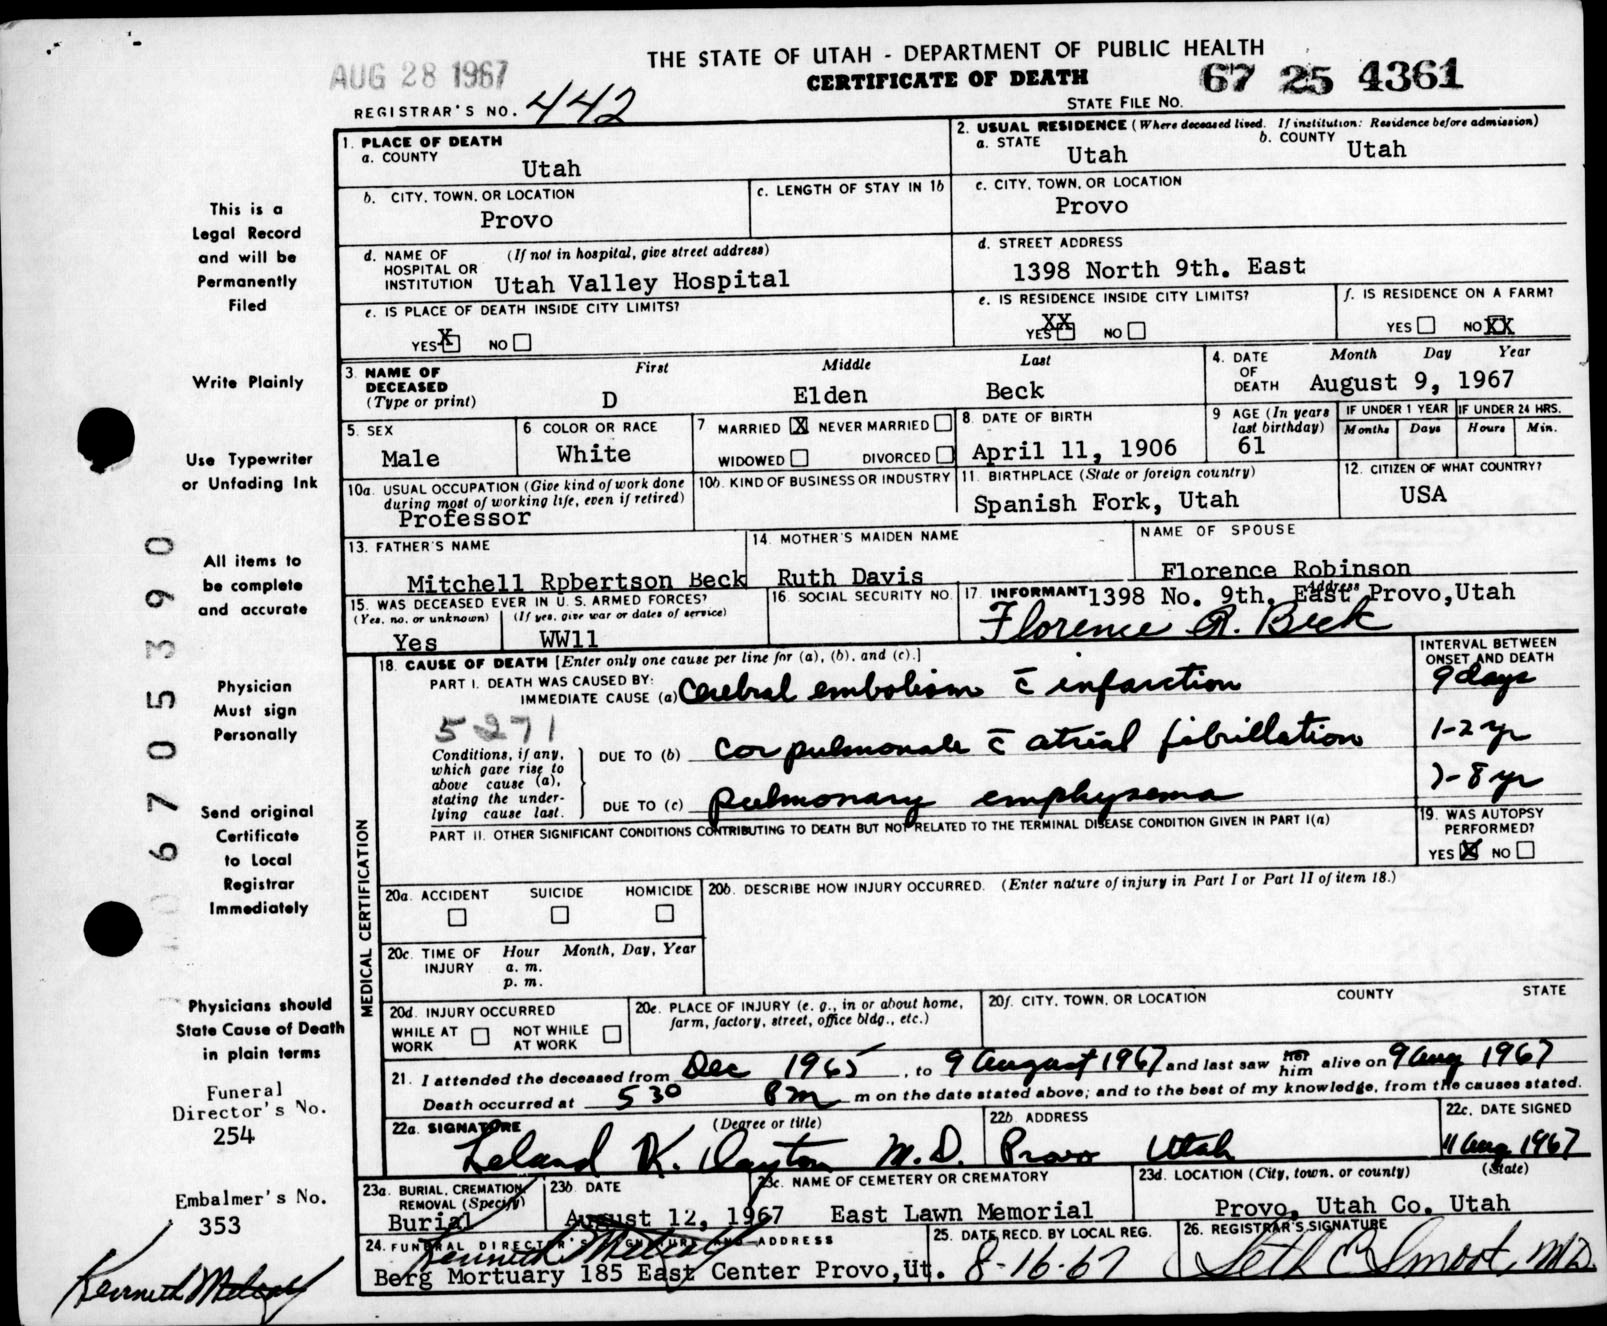 THE STATE OF UTAH - DEPARTMENT OF PUBLIC HEALTH
CERTIFICATE OF DEATH
AUG 28 1967
REGISTRAR'S NO. 442
STATE FILE NO. 67 25 4361
1. PLACE OF DEATH
a. COUNTY
Utah
2. USUAL RESIDENCE (Where deceased lived. If institution: Residence before admission)
a. STATE
Utah
b. COUNTY
Utah
b. CITY, TOWN, OR LOCATION
Provo
c. LENGTH OF STAY IN 1b
c. CITY, TOWN, OR LOCATION
Provo
d. NAME OF HOSPITAL OR INSTITUTION (If not in hospital, give street address)
Utah Valley Hospital
d. STREET ADDRESS
1398 North 9th. East
e. IS PLACE OF DEATH INSIDE CITY LIMITS?
YES X NO
e. IS RESIDENCE INSIDE CITY LIMITS?
YES XX NO
f. IS RESIDENCE ON A FARM?
YES NO XX
3. NAME OF DECEASED (Type or print)
First Middle Last
D Elden Beck
4. DATE OF DEATH
Month Day Year
August 9, 1967
5. SEX
Male
6 COLOR OR RACE
White
7 MARRIED X NEVER MARRIED
WIDOWED DIVORCED
8. DATE OF BIRTH
April 11, 1906
9 AGE (In years last birthday)
61
IF UNDER 1 YEAR
Months Days
IF UNDER 24 HRS.
Hours Min.
10a. USUAL OCCUPATION (Give kind of work done during most of working life, even if retired)
Professor
10b. KIND OF BUSINESS OR INDUSTRY
11. BIRTHPLACE (State or foreign country)
Spanish Fork, Utah
12. CITIZEN OF WHAT COUNTRY?
USA
13. FATHER'S NAME
Mitchell Rpbertson Beck
14. MOTHER'S MAIDEN NAME
Ruth Davis
NAME OF SPOUSE
Florence Robinson
15. WAS DECEASED EVER IN U. S. ARMED FORCES?
(Yes, no, or unknown) (If yes, give war or dates of service)
Yes WW11
16. SOCIAL SECURITY NO.
17. INFORMANT Address
1398 No. 9th. East Provo,Utah
Florence R. Beck
MEDICAL CERTIFICATION
18. CAUSE OF DEATH [Enter only one cause per line for (a), (b), and (c).]
INTERVAL BETWEEN ONSET AND DEATH
PART I. DEATH WAS CAUSED BY:
IMMEDIATE CAUSE (a) Cerebral embolism c̄ infarction
9 days
5271
Conditions, if any, which gave rise to above cause (a), stating the underlying cause last.
DUE TO (b) Cor pulmonale c̄ atrial fibrillation
1-2 yr
DUE TO (c) pulmonary emphysema
7-8 yr
PART II. OTHER SIGNIFICANT CONDITIONS CONTRIBUTING TO DEATH BUT NOT RELATED TO THE TERMINAL DISEASE CONDITION GIVEN IN PART I(a)
19. WAS AUTOPSY PERFORMED?
YES X NO
20a. ACCIDENT SUICIDE HOMICIDE
20b. DESCRIBE HOW INJURY OCCURRED. (Enter nature of injury in Part I or Part II of item 18.)
20c. TIME OF INJURY Hour Month, Day, Year
a. m.
p. m.
20d. INJURY OCCURRED
WHILE AT WORK NOT WHILE AT WORK
20e. PLACE OF INJURY (e. g., in or about home, farm, factory, street, office bldg., etc.)
20f. CITY, TOWN, OR LOCATION COUNTY STATE
21. I attended the deceased from Dec 1965, to 9 August 1967 and last saw her him alive on 9 Aug 1967
Death occurred at 530 Pm m on the date stated above; and to the best of my knowledge, from the causes stated.
22a. SIGNATURE (Degree or title)
Leland K. Dayton M.D.
22b. ADDRESS
Provo Utah
22c. DATE SIGNED
11 Aug 1967
23a. BURIAL, CREMATION, REMOVAL (Specify)
Burial
23b. DATE
August 12, 1967
23c. NAME OF CEMETERY OR CREMATORY
East Lawn Memorial
23d. LOCATION (City, town, or county) (State)
Provo, Utah Co. Utah
24. FUNERAL DIRECTOR'S SIGNATURE AND ADDRESS
Kenneth Metcalf
Berg Mortuary 185 East Center Provo,Ut.
25. DATE RECD. BY LOCAL REG.
8-16-67
26. REGISTRAR'S SIGNATURE
Seth E Smoot, MD.
This is a
Legal Record
and will be
Permanently
Filed
Write Plainly
Use Typewriter
or Unfading Ink
All items to
be complete
and accurate
Physician
Must sign
Personally
Send original
Certificate
to Local
Registrar
Immediately
Physicians should
State Cause of Death
in plain terms
Funeral
Director's No.
254
Embalmer's No.
353
Kenneth Metcalf
0 6 7 0 5 3 9 0